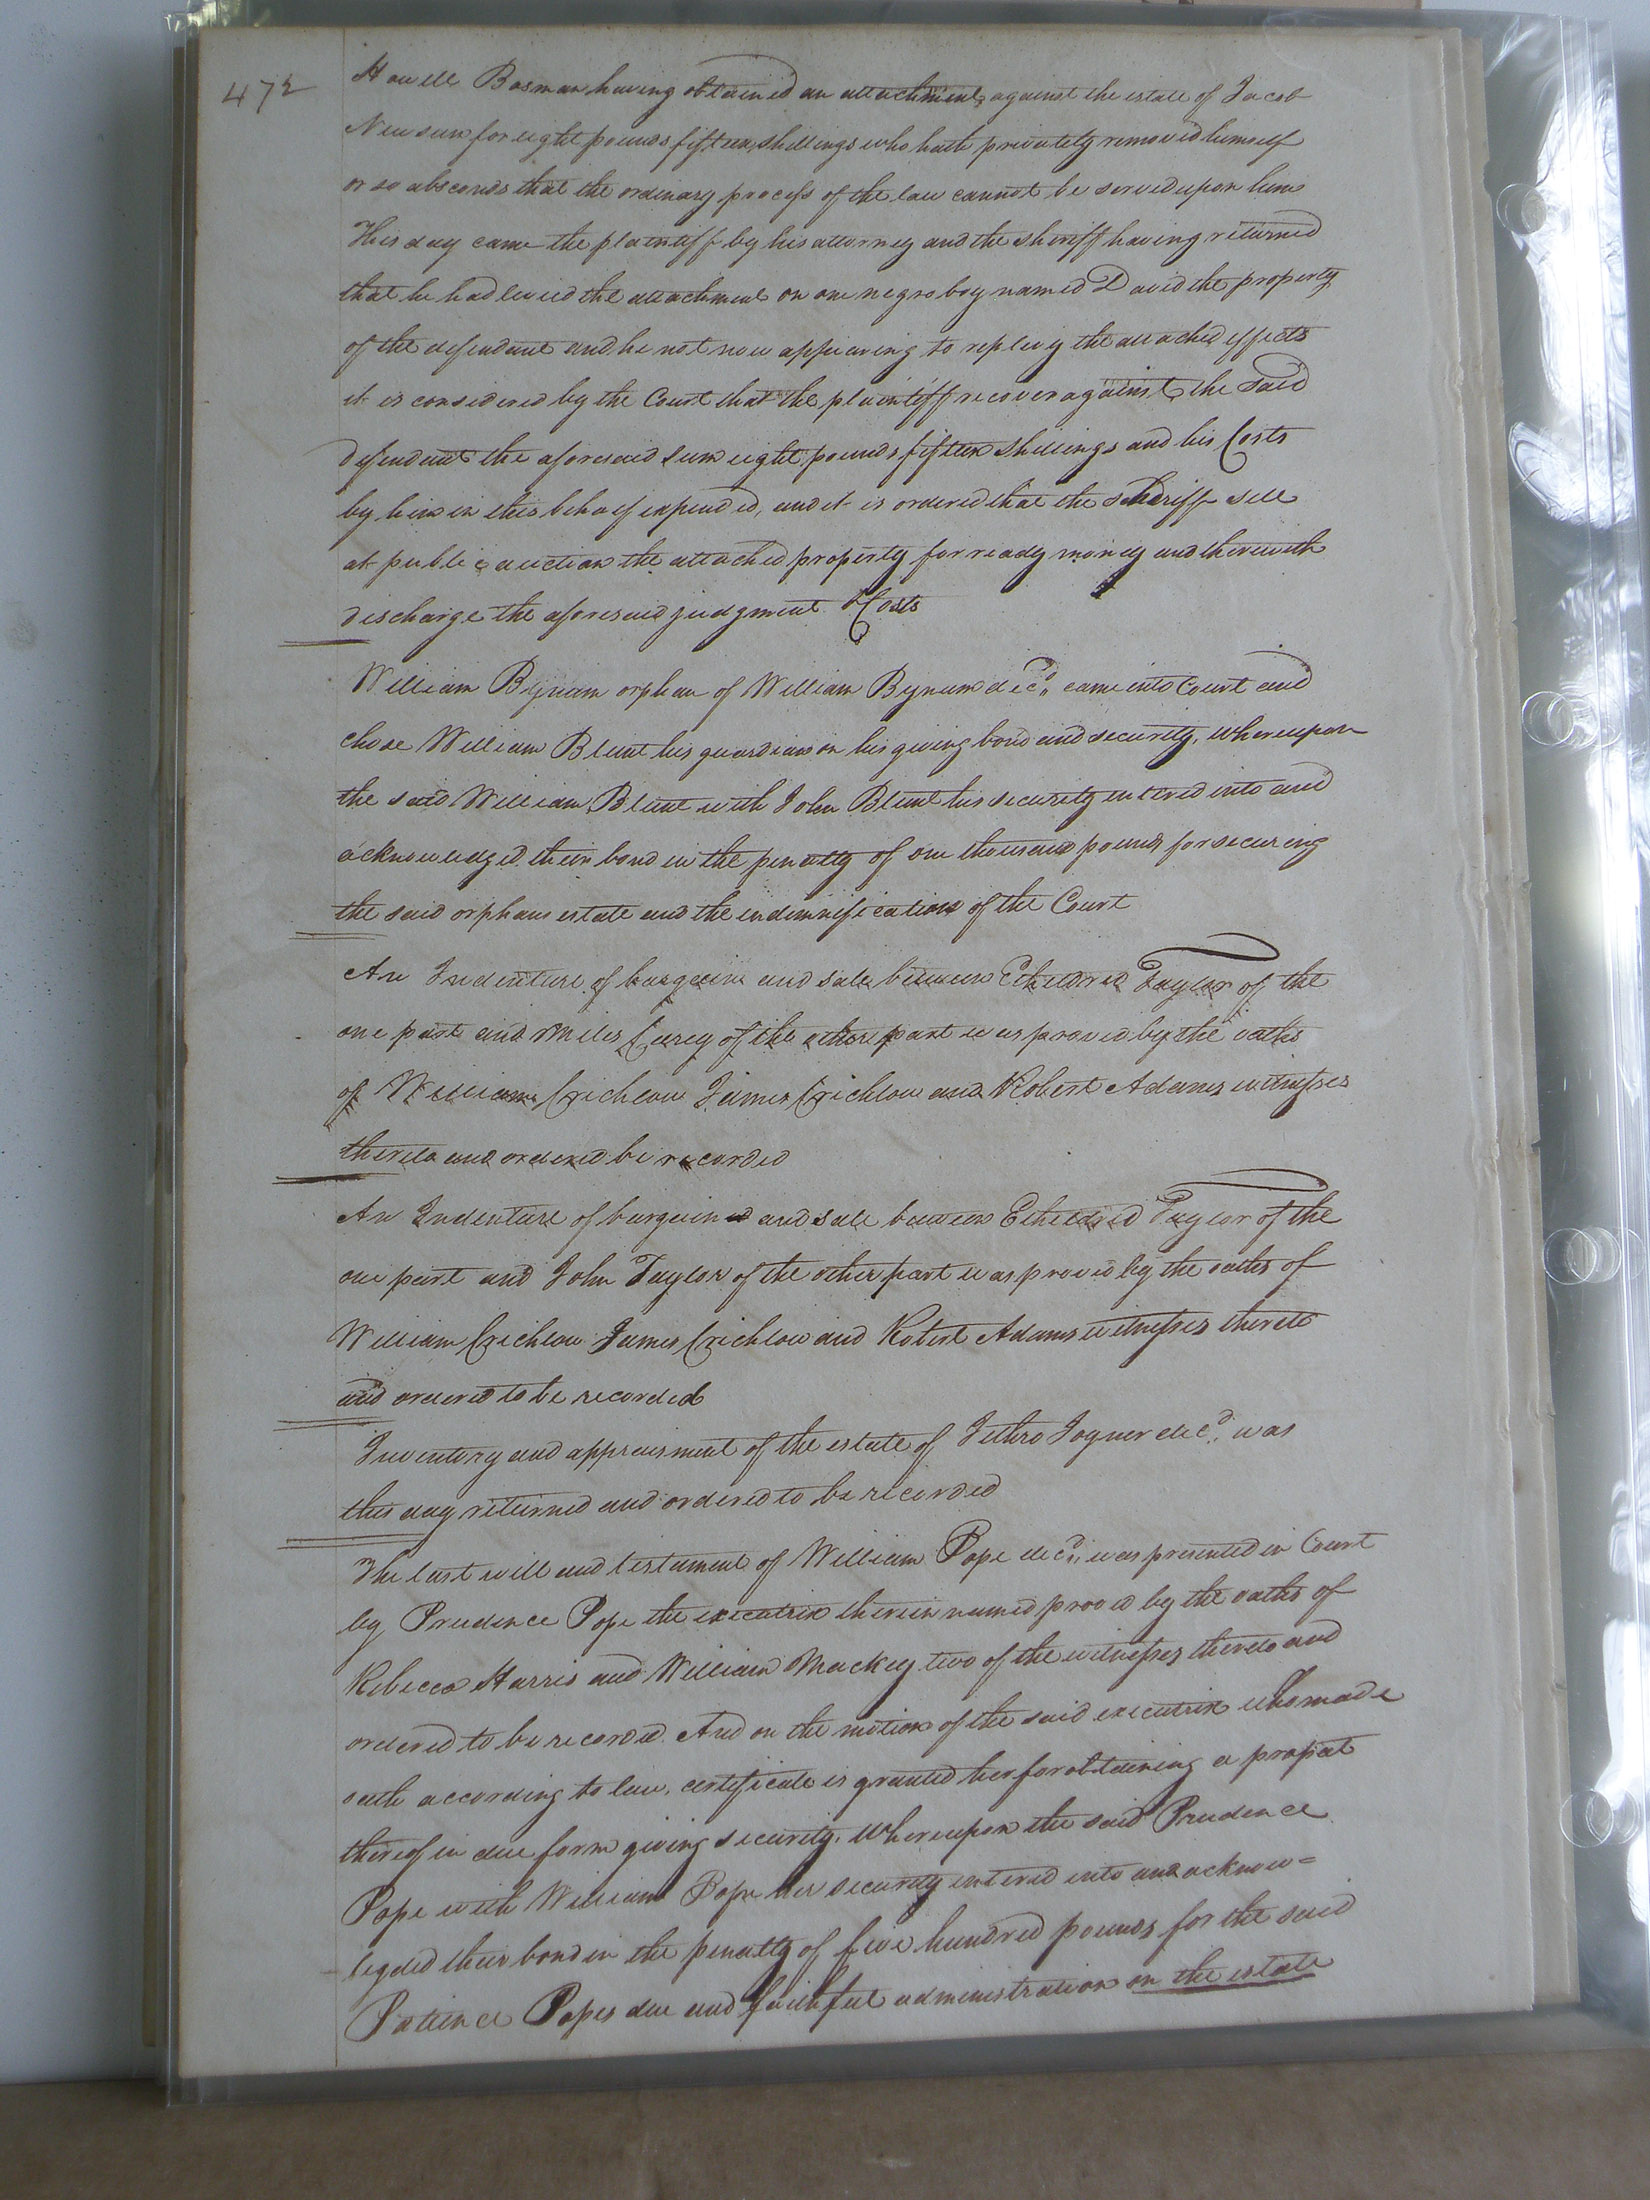 472
Howell Bosman having obtained an attachment against the estate of Jacob
Newsum for eight pounds fifteen shillings who hath privately removed himself
or so absconds that the ordinary process of the law cannot be served upon him
This day came the plaintiff by his attorney and the sheriff having returned
that he had levied the attachment on one negro boy named David the property
of the defendant and he not now appearing to replevy the attached effects
it is considered by the Court that the plaintiff recover against the said
defendant the aforesaid sum eight pounds fifteen shillings and his Costs
by him in this behalf expended, and it is ordered that the sheriff sell
at public auction the attached property for ready money and therewith
discharge the aforesaid judgment & Costs
William Bynum orphan of William Bynum decd. came into Court and
chose William Blunt his guardian on his giving bond and security, whereupon
the said William Blunt with John Blunt his security entered into and
acknowledged their bond in the penalty of one thousand pounds for securing
the said orphans estate and the indemnification of the Court
An Indenture of bargain and sale between Etheldred Taylor of the
one part and Miles Carey of the other part was proved by the oaths
of William Crichlow James Crichlow and Robert Adams witnesses
thereto and ordered be recorded
An Indenture of bargain and sale between Etheldred Taylor of the
one part and John Taylor of the other part was proved by the oaths of
William Crichlow James Crichlow and Robert Adams witnesses thereto
and ordered to be recorded
Inventory and appraisment of the estate of Jethro Joyner decd. was
this day returned and ordered to be recorded
The last will and testament of William Pope decd. was presented in Court
by Prudence Pope the executrix therein named proved by the oaths of
Rebecca Harris and William Mackey two of the witnesses thereto and
ordered to be recorded. And on the motion of the said executrix who made
oath according to law, certificate is granted her for obtaining a probat
thereof in due form giving security. Whereupon the said Prudence
Pope with William Pope her security entered into and acknow=
legded their bond in the penalty of five hundred pounds for the said
Patience Popes due and faithful administration on the estate